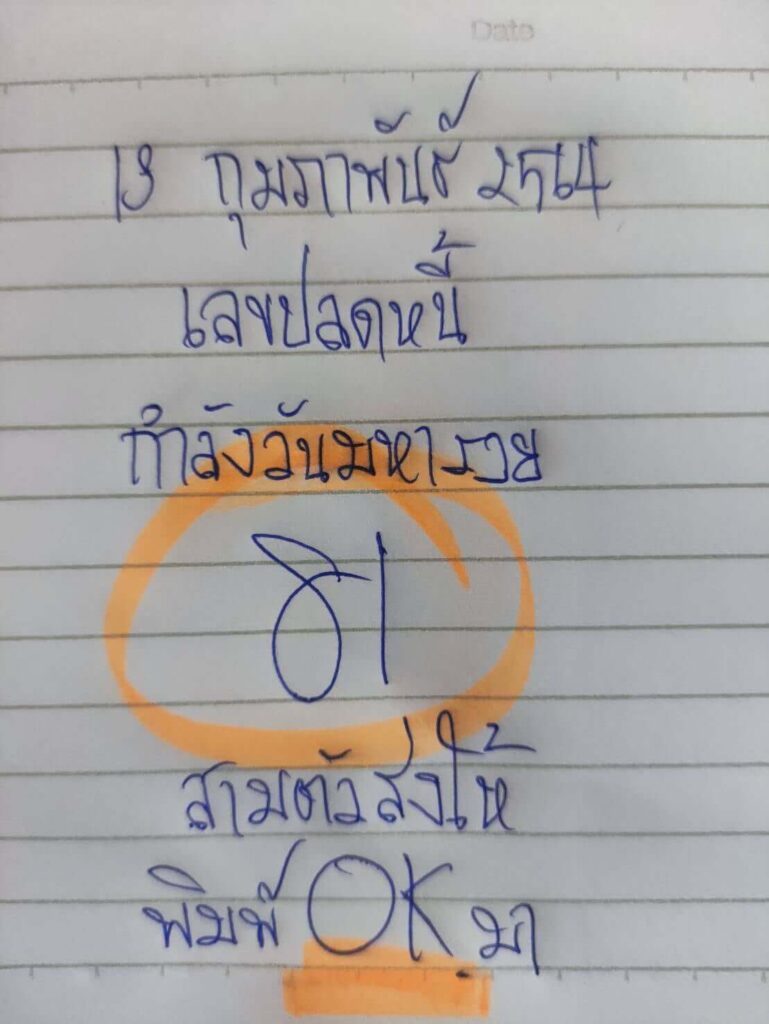 Date
13 กุมภาพันธ์ 2564
เลขปลดหนี้
กำลังวันมหารวย
81
สามตัวส่งให้
พิมพ์ OK มา